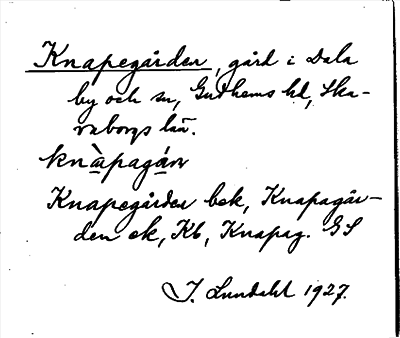 Knapegården, gård i Dala
by och sn, Gudhems hd, Ska-
raborgs län.
knàpagárn
Knapegården bek, Knapagår-
den ek, Kb, Knapag. GS
J. Lundahl 1927.